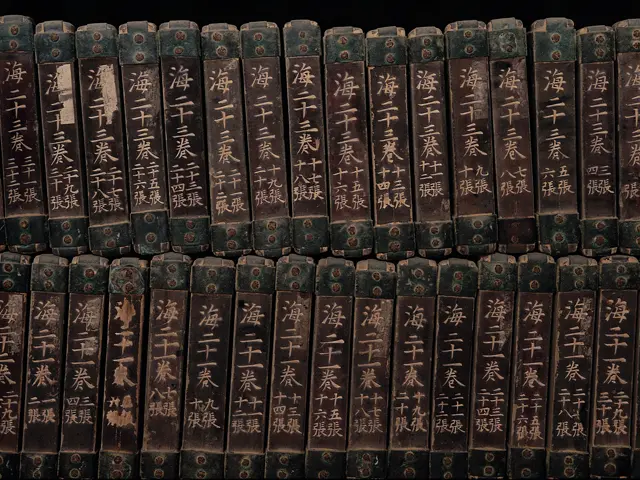 海二十三卷
海二十三卷 二十九張 三十張
海二十三卷 二十七張 二十八張
海二十三卷 二十五張 二十六張
海二十三卷 二十三張 二十四張
海二十三卷 二十一張 二十二張
海二十三卷 十九張 二十張
海二十三卷 十七張 十八張
海二十三卷 十五張 十六張
海二十三卷 十三張 十四張
海二十三卷 十一張 十二張
海二十三卷 九張 十張
海二十三卷 七張 八張
海二十三卷 五張 六張
海二十三卷 三張 四張
海二十一卷 一張 二張
海二十一卷 三張 四張
海二十一卷
海二十一卷 七張 八張
海二十一卷 九張 十張
海二十一卷 十一張 十二張
海二十一卷 十三張 十四張
海二十一卷 十五張 十六張
海二十一卷 十七張 十八張
海二十一卷 十九張 二十張
海二十一卷 二十一張 二十二張
海二十一卷 二十三張 二十四張
海二十一卷 二十五張 二十六張
海二十一卷 二十七張 二十八張
海二十一卷 二十九張 三十張